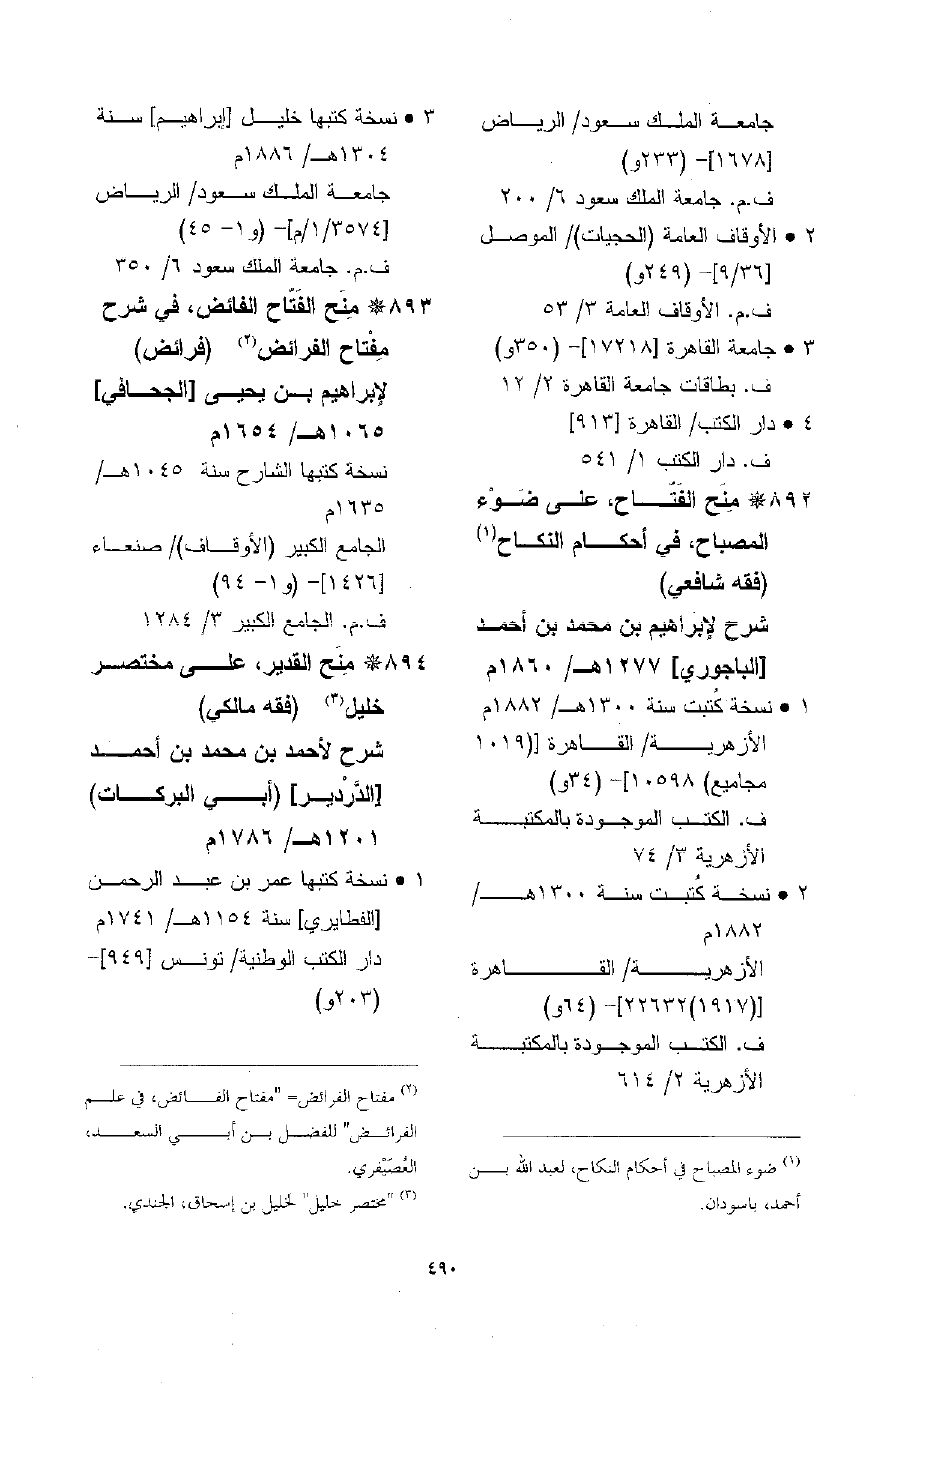 جامعة الملك سعود/ الرياض
[١٦٧٨]- (٢٣٣و)
ف.م. جامعة الملك سعود ٦/ ٢٠٠
٢ • الأوقاف العامة (الحجيات)/ الموصل
[٩/٣٦]- (٢٤٩و)
ف.م. الأوقاف العامة ٣/ ٥٣
٣ • جامعة القاهرة [١٧٢١٨]- (٣٥٠و)
ف. بطاقات جامعة القاهرة ٢/ ١٢
٤ • دار الكتب/ القاهرة [٩١٣]
ف. دار الكتب ١/ ٥٤١
٨٩٢* مِنَح الفَتَّاح، على ضَوْء
المصباح، في أحكام النكاح(١)
(فقه شافعي)
شرح لإبراهيم بن محمد بن أحمد
[الباجوري] ١٢٧٧هـ/ ١٨٦٠م
١ • نسخة كُتبت سنة ١٣٠٠هـ/ ١٨٨٢م
الأزهرية/ القاهرة [(١٠١٩
مجاميع) ١٠٥٩٨]- (٣٤و)
ف. الكتب الموجودة بالمكتبة
الأزهرية ٣/ ٧٤
٢ • نسخة كُتبت سنة ١٣٠٠هـ/
١٨٨٢م
الأزهرية/ القاهرة
[(١٩١٧)٢٢٦٣٢]- (٦٤و)
ف. الكتب الموجودة بالمكتبة
الأزهرية ٢/ ٦١٤
(١) ضوء المصباح في أحكام النكاح، لعبد الله بن
أحمد، باسودان.
٣ • نسخة كتبها خليل [إبراهيم] سنة
١٣٠٤هـ/ ١٨٨٦م
جامعة الملك سعود/ الرياض
[١/٣٥٧٤/م]- (و١- ٤٥)
ف.م. جامعة الملك سعود ٦/ ٣٥٠
٨٩٣* مِنَح الفَتَّاح الفائض، في شرح
مِفْتاح الفرائض(٢) (فرائض)
لإبراهيم بن يحيى [الجحافي]
١٠٦٥هـ/ ١٦٥٤م
نسخة كتبها الشارح سنة ١٠٤٥هـ/
١٦٣٥م
الجامع الكبير (الأوقاف)/ صنعاء
[١٤٢٦]- (و١- ٩٤)
ف.م. الجامع الكبير ٣/ ١٢٨٤
٨٩٤* مِنَح القدير، على مختصر
خليل(٣) (فقه مالكي)
شرح لأحمد بن محمد بن أحمد
[الدَّرْدير] (أبي البركات)
١٢٠١هـ/ ١٧٨٦م
١ • نسخة كتبها عمر بن عبد الرحمن
[الفطايري] سنة ١١٥٤هـ/ ١٧٤١م
دار الكتب الوطنية/ تونس [٩٤٩]-
(٢٠٣و)
(٢) مفتاح الفرائض= "مفتاح الفائض، في علم
الفرائض" للفضل بن أبي السعد،
العُصَيْفري.
(٣) "مختصر خليل" لخليل بن إسحاق، الجندي.
٤٩٠